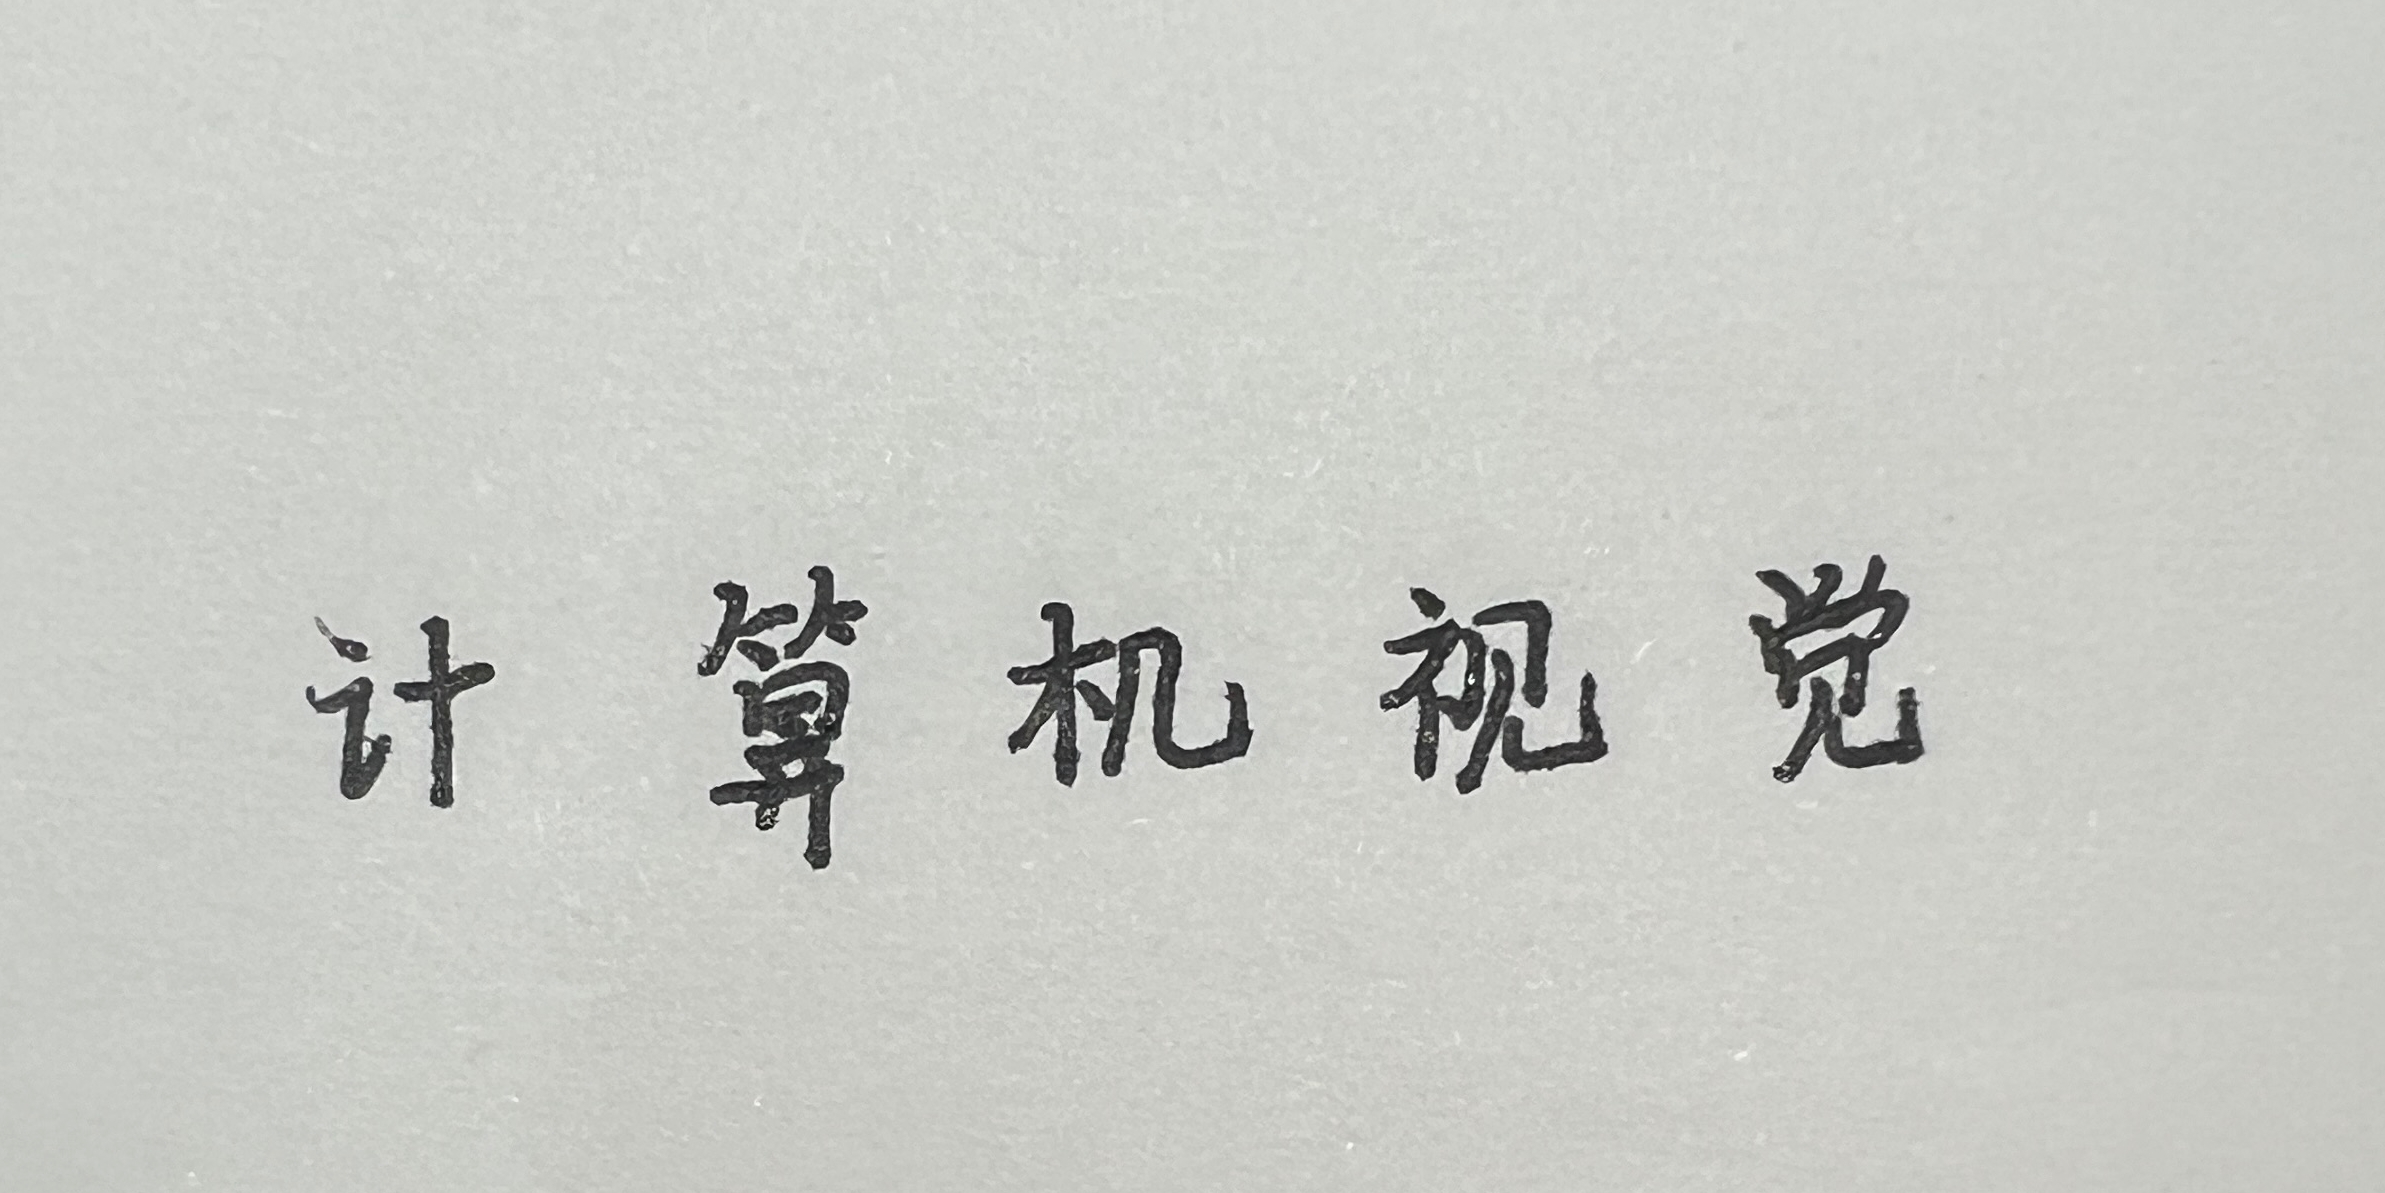 计算机视觉